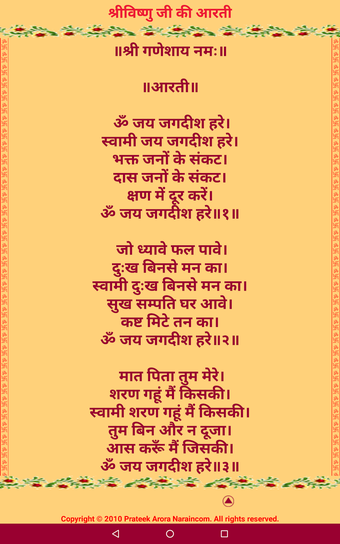 श्रीविष्णु जी की आरती
॥श्री गणेशाय नमः॥
॥आरती॥
ॐ जय जगदीश हरे।
स्वामी जय जगदीश हरे।
भक्त जनों के संकट।
दास जनों के संकट।
क्षण में दूर करें।
ॐ जय जगदीश हरे॥१॥
जो ध्यावे फल पावे।
दुःख बिनसे मन का।
स्वामी दुःख बिनसे मन का।
सुख सम्पति घर आवे।
कष्ट मिटे तन का।
ॐ जय जगदीश हरे॥२॥
मात पिता तुम मेरे।
शरण गहूं मैं किसकी।
स्वामी शरण गहूं मैं किसकी।
तुम बिन और न दूजा।
आस करूँ मैं जिसकी।
ॐ जय जगदीश हरे॥३॥
Copyright © 2010 Prateek Arora Naraincom. All rights reserved.